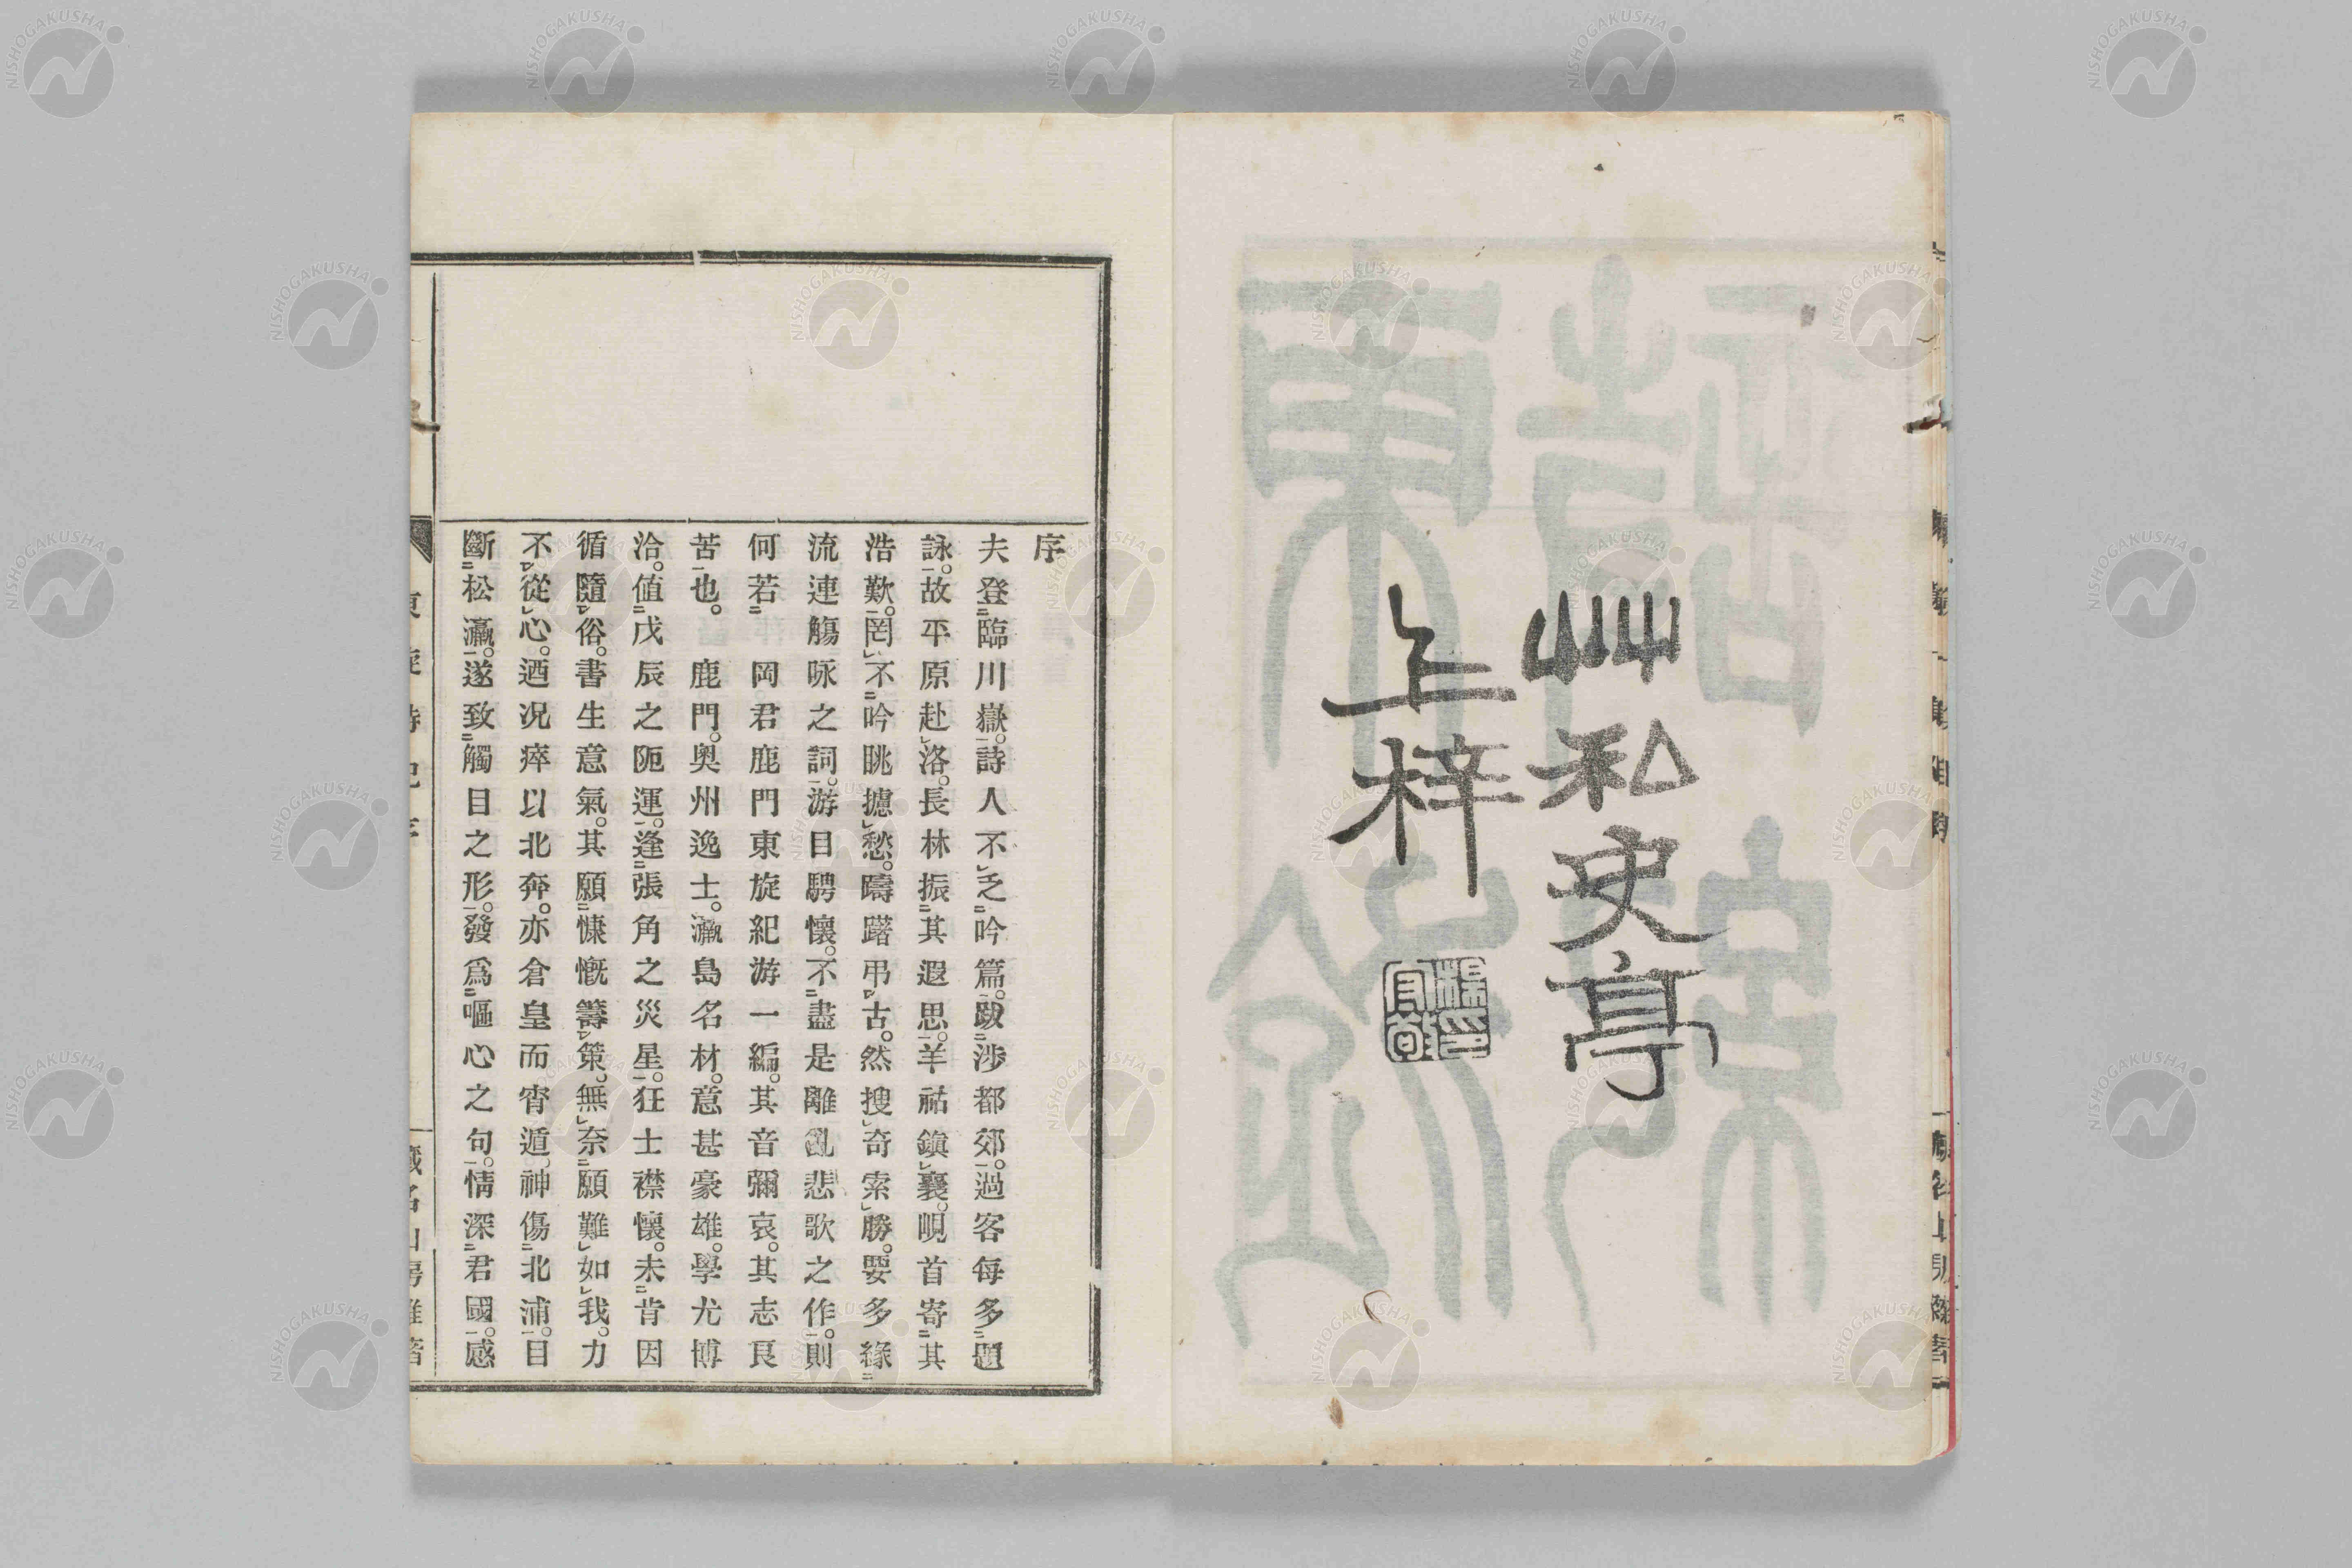 艸私史亭
上梓
序
夫登臨川嶽。詩人不乏吟篇。跋涉都郊。過客每多題
詠。故平原赴洛。長林振其遐思。羊祜鎮襄。峴首寄其
浩歎。罔不吟眺攄愁。躊躇弔古。然搜奇索勝。要多緣
流連觴咏之詞。游目騁懷。不盡是離亂悲歌之作。則
何若岡君鹿門東旋紀游一編。其音彌哀。其志良
苦也。鹿門。奧州逸士。瀛島名材。意甚豪雄。學尤博
洽。値戊辰之阨運。逢張角之災星。狂士襟懷。未肯因
循隨俗。書生意氣。其願慷慨籌策。無奈願難如我。力
不從心。迺況瘁以北奔。亦倉皇而宵遁。神傷北浦。目
斷松瀛。遂致觸目之形。發爲嘔心之句。情深君國。感
NISHOGAKUSHA